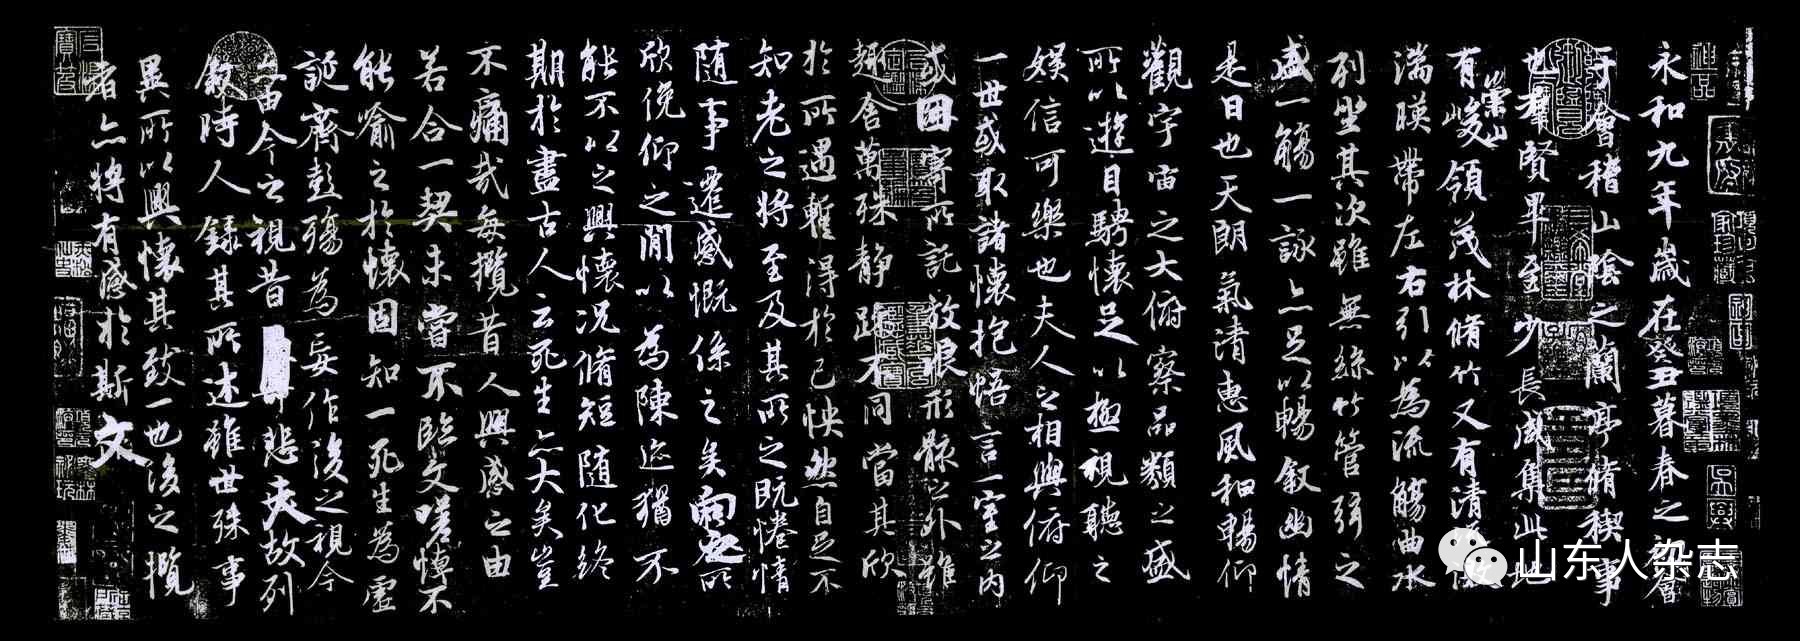 永和九年歲在癸丑暮春之初會
于會稽山陰之蘭亭脩稧事
也羣賢畢至少長咸集此地
有峻領茂林脩竹又有清流激
崇山
湍暎帶左右引以為流觴曲水
列坐其次雖無絲竹管弦之
盛一觴一詠亦足以暢敘幽情
是日也天朗氣清惠風和暢仰
觀宇宙之大俯察品類之盛
所以遊目騁懷足以極視聽之
娛信可樂也夫人之相與俯仰
一世或取諸懷抱悟言一室之內
或因寄所託放浪形骸之外雖
趣舍萬殊靜躁不同當其欣
於所遇暫得於己怏然自足不
知老之將至及其所之既惓情
隨事遷感慨係之矣向之所
欣俛仰之閒以為陳迹猶不
能不以之興懷況脩短隨化終
期於盡古人云死生亦大矣豈
不痛哉每攬昔人興感之由
若合一契未嘗不臨文嗟悼不
能喻之於懷固知一死生為虛
誕齊彭殤為妄作後之視今
亦由今之視昔悲夫故列
敘時人錄其所述雖世殊事
異所以興懷其致一也後之攬
者亦將有感於斯文
山东人杂志